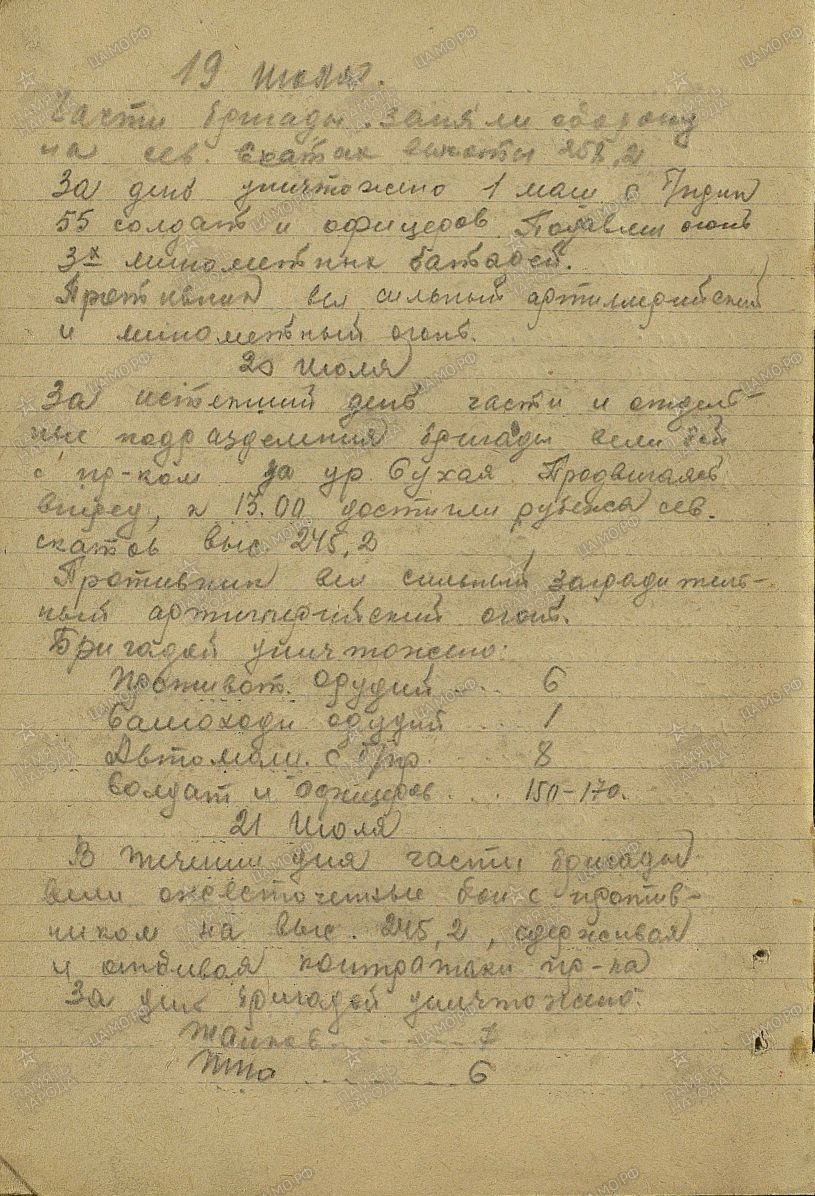 19 Июля.
Части бригады заняли оборону
на сев. скатах высоты 258,2
За день уничтожено 1 маш с
55 солдат и офицеров Подавлен огонь
3х минометных батарей.
Противник вел сильный артиллерийский
и минометный огонь.
20 Июля
За истекший день части и отдель-
ные подразделения бригады вели бой
с пр-ком за ур Сухая Продвигаясь
вперед, к 13.00 достигли рубежа сев.
скатов выс. 245,2
Противник вел сильный заградитель-
ный артиллерийский огонь.
Бригадой уничтожено:
Противот. орудий .... 6
Самоходн орудий ... 1
Автомаш. с гр. .... 8
Солдат и офицеров ... 150-170.
21 Июля
В течении дня части бригады
вели ожесточенные бои с против-
ником на выс. 245,2, сдерживая
и отбивая контратаки пр-ка
За день бригадой уничтожено:
Танков ........ 7
ПТО ........ 6